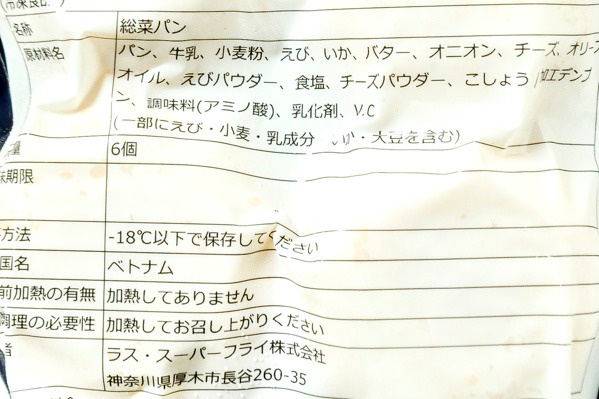 名称 総菜パン
原材料名 パン、牛乳、小麦粉、えび、いか、バター、オニオン、チーズ、オリーブ
オイル、えびパウダー、食塩、チーズパウダー、こしょう/加工デンプ
ン、調味料(アミノ酸)、乳化剤、V.C
(一部にえび・小麦・乳成分・いか・大豆を含む)
量 6個
味期限
方法 -18℃以下で保存してください
国名 ベトナム
前加熱の有無 加熱してありません
調理の必要性 加熱してお召し上がりください
者 ラス・スーパーフライ株式会社
神奈川県厚木市長谷260-35